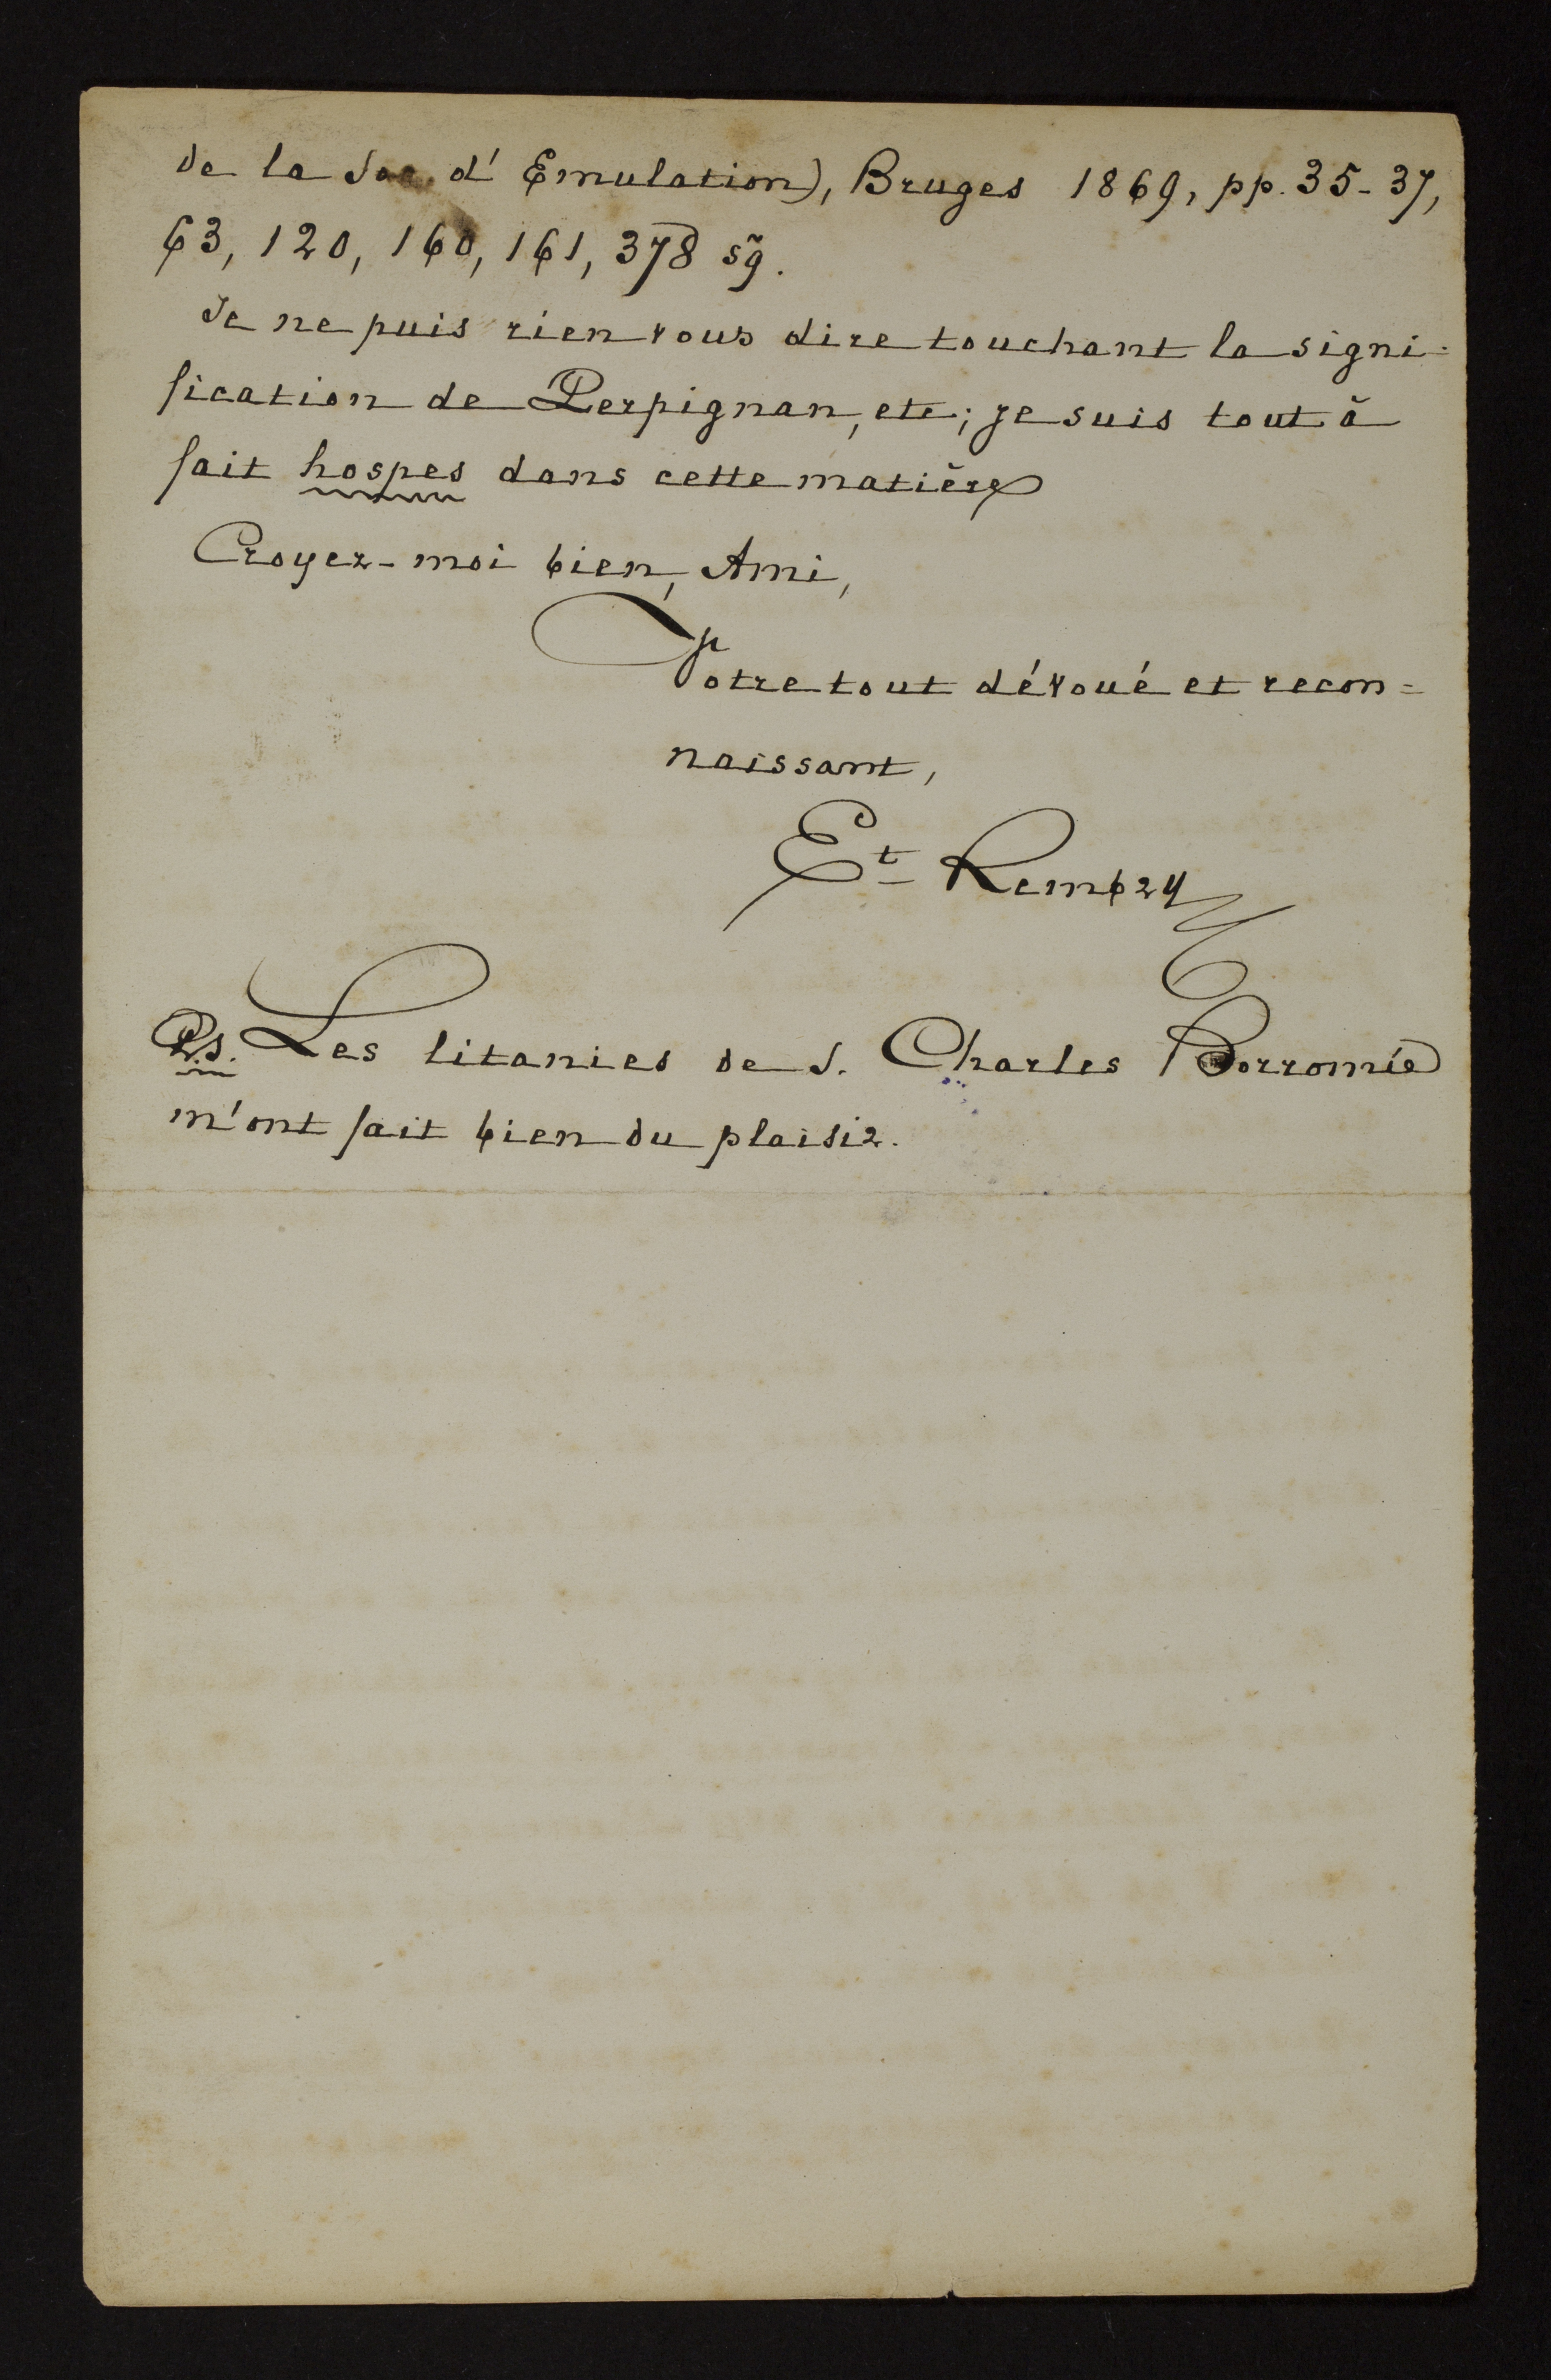 de la Soc. d'Emulation), Bruges 1869, pp. 35-37,
63, 120, 160, 161, 378 sq̃.
Je ne puis rien vous dire touchant la signi=
fication de Perpignan, etc; je suis tout à
fait hospes dans cette matière
Croyez-moi bien, Ami,
Votre tout dévoué et recon=
naissant,
Et Rembry
P.S. Les litanies de S. Charles Borromée
m'ont fait bien du plaisir.